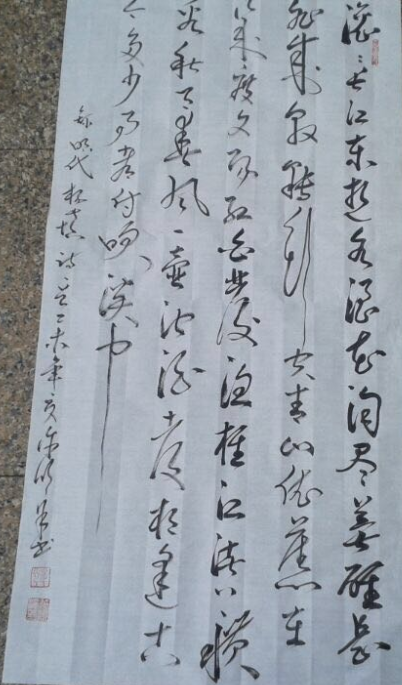 滚滚长江东逝水浪花淘尽英雄是
非成败转头空青山依旧在
几度夕阳红白发渔樵江渚上惯
看秋月春风一壶浊酒喜相逢古
今多少事都付笑谈中
明代杨慎诗乙未年夏书